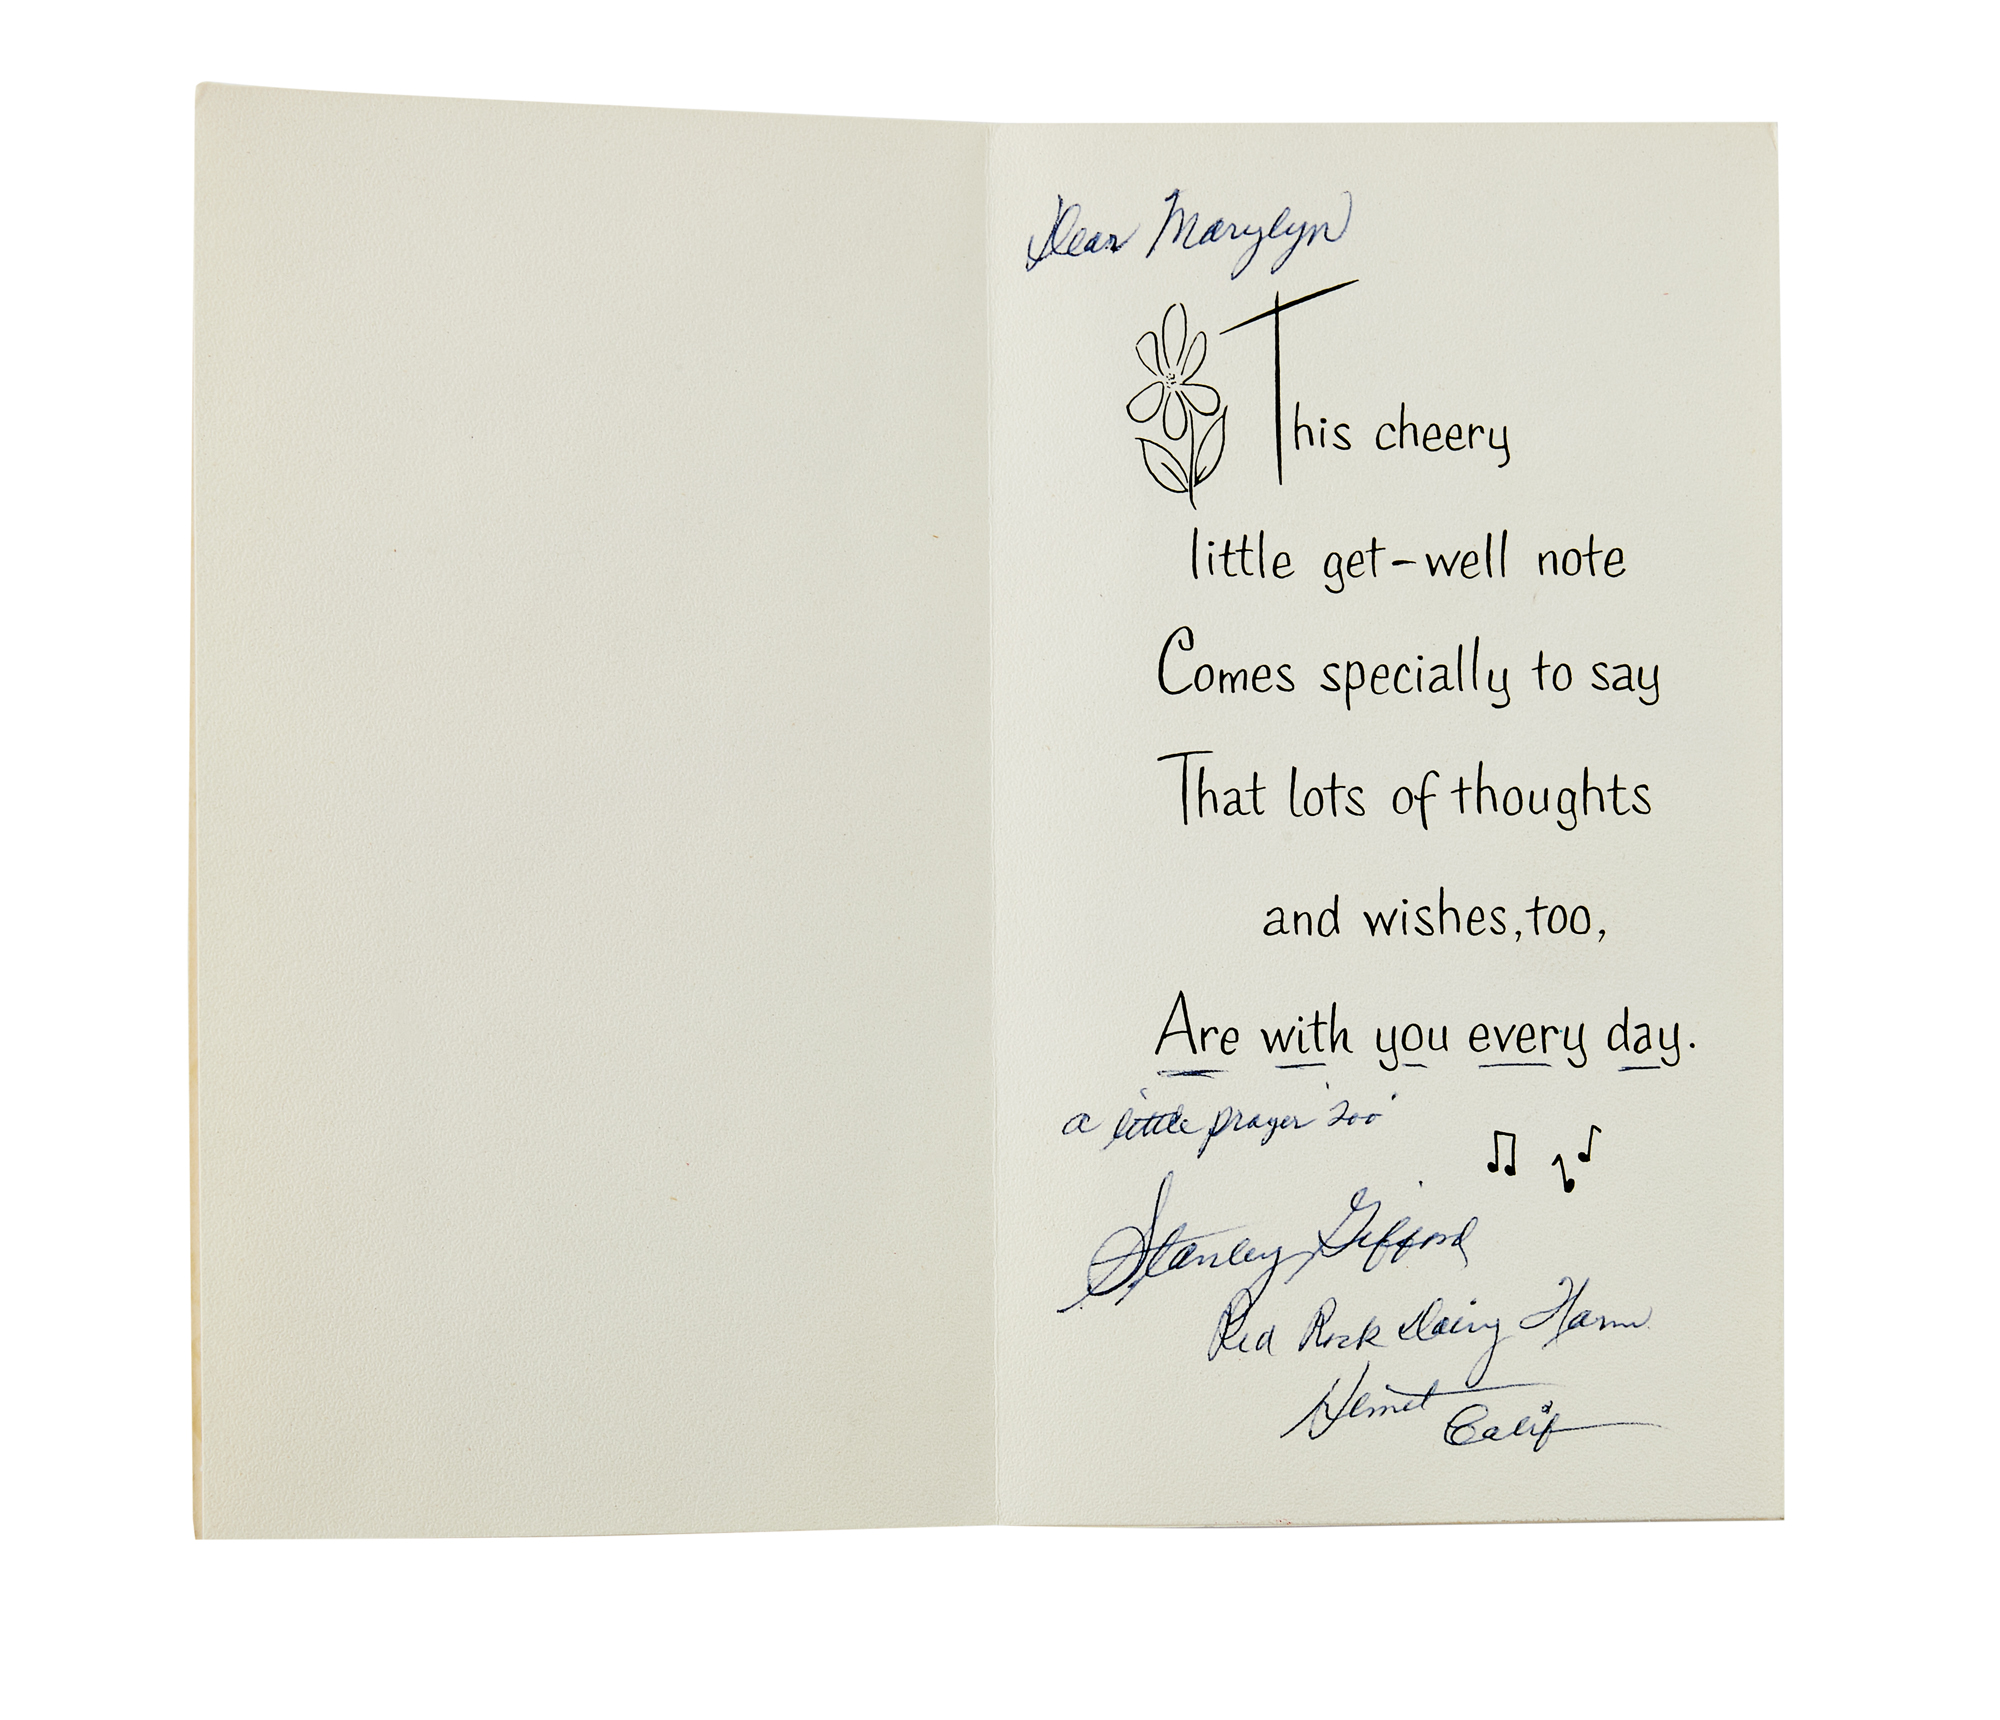 Dear Marylyn
This cheery
little get-well note
Comes specially to say
That lots of thoughts
and wishes, too,
Are with you every day.
a little prayer 'too'
Stanley Gifford
Red Rock Dairy Farm
Hemet
Calif